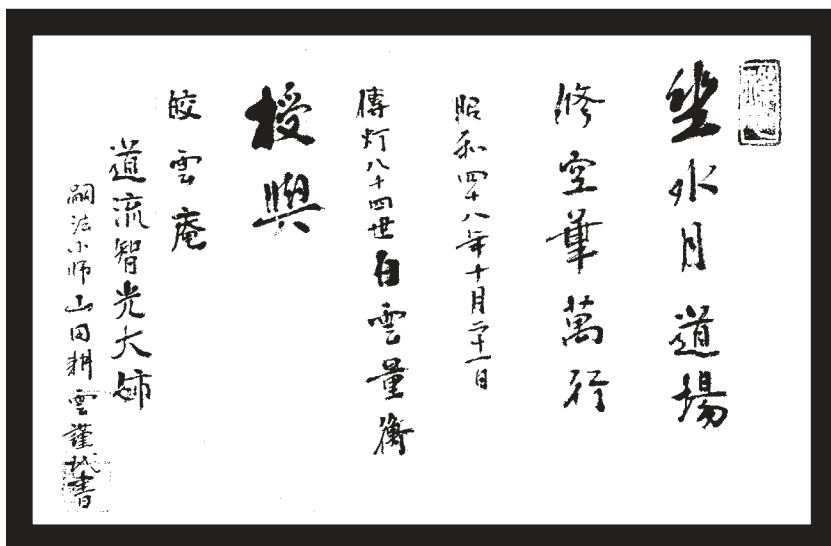 坐水月道場
修空華萬行
昭和四十八年十月二十一日
傳灯八十四世白雲量衡
授與
皎雲庵
道流智光大姉
嗣法小師山田耕雲謹代書